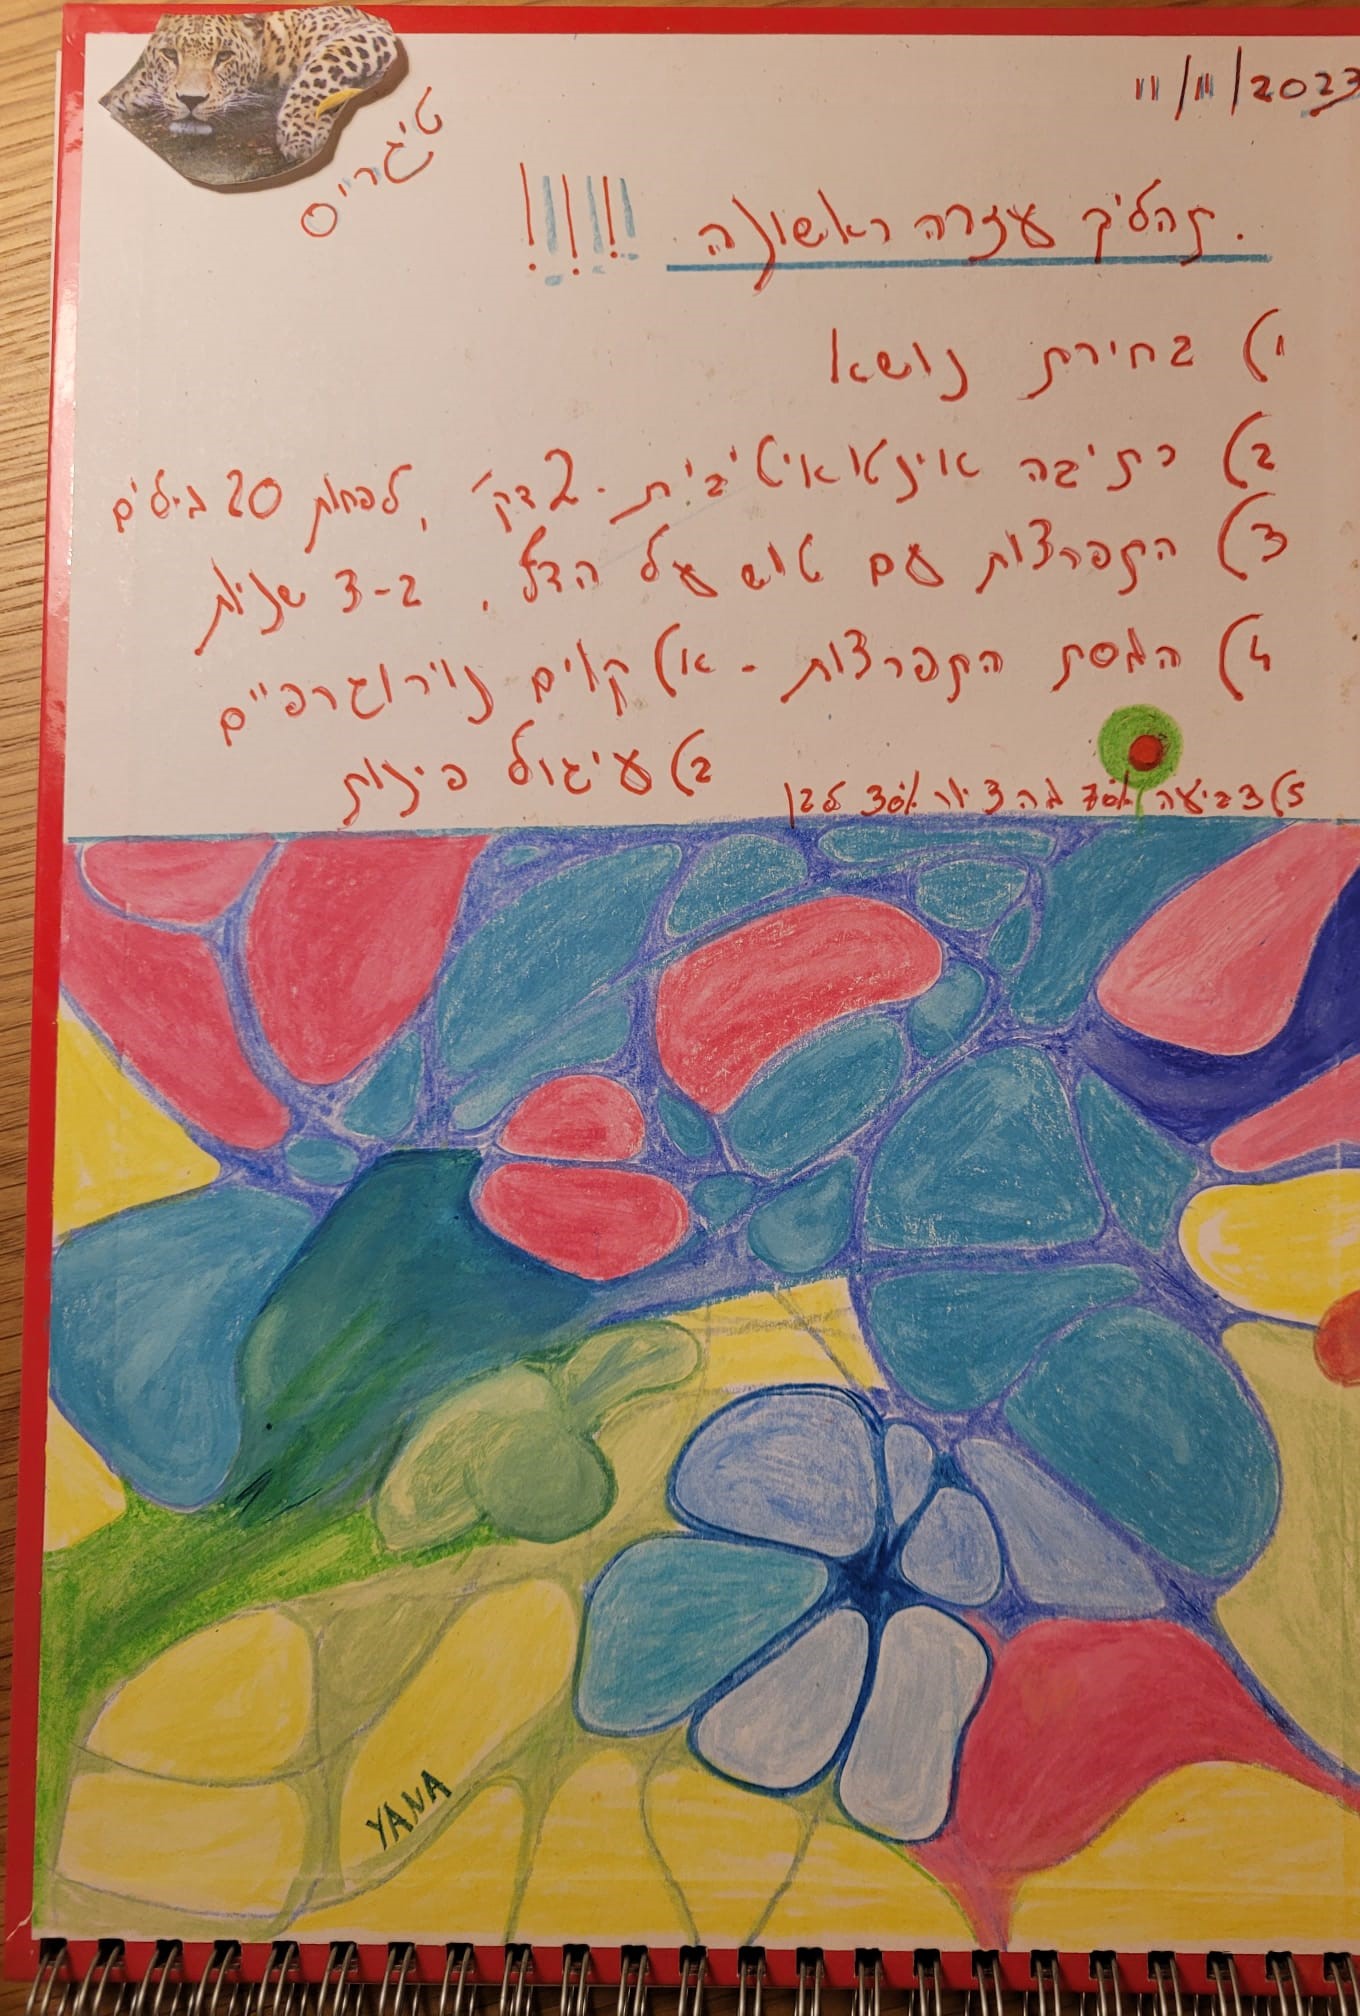 11/11/2023
טיגריס
תהליך עזרה ראשונה !!!!!!
1) בחירת נושא
2) כתיבה אינטואיטיבית - 2 דק', לפחות 20 מילים
3) התפרצות עם טוש על הדף, ב-3 שניות
4) הוספת התפרצות - א) קווים נוירוגרפיים
ב) עיגול פינות
5) צביעה
YANA